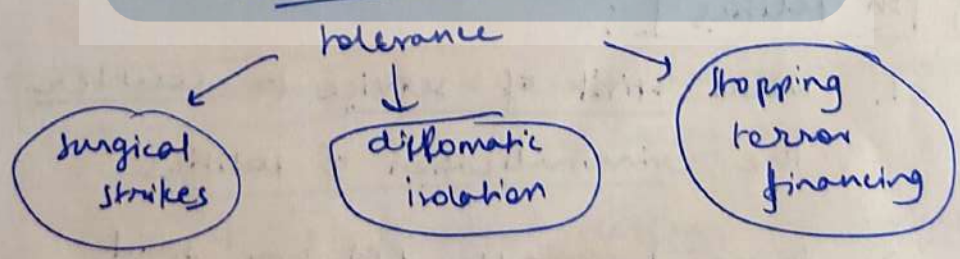 tolerance
surgical
strikes
diplomatic
isolation
stopping
terror
financing